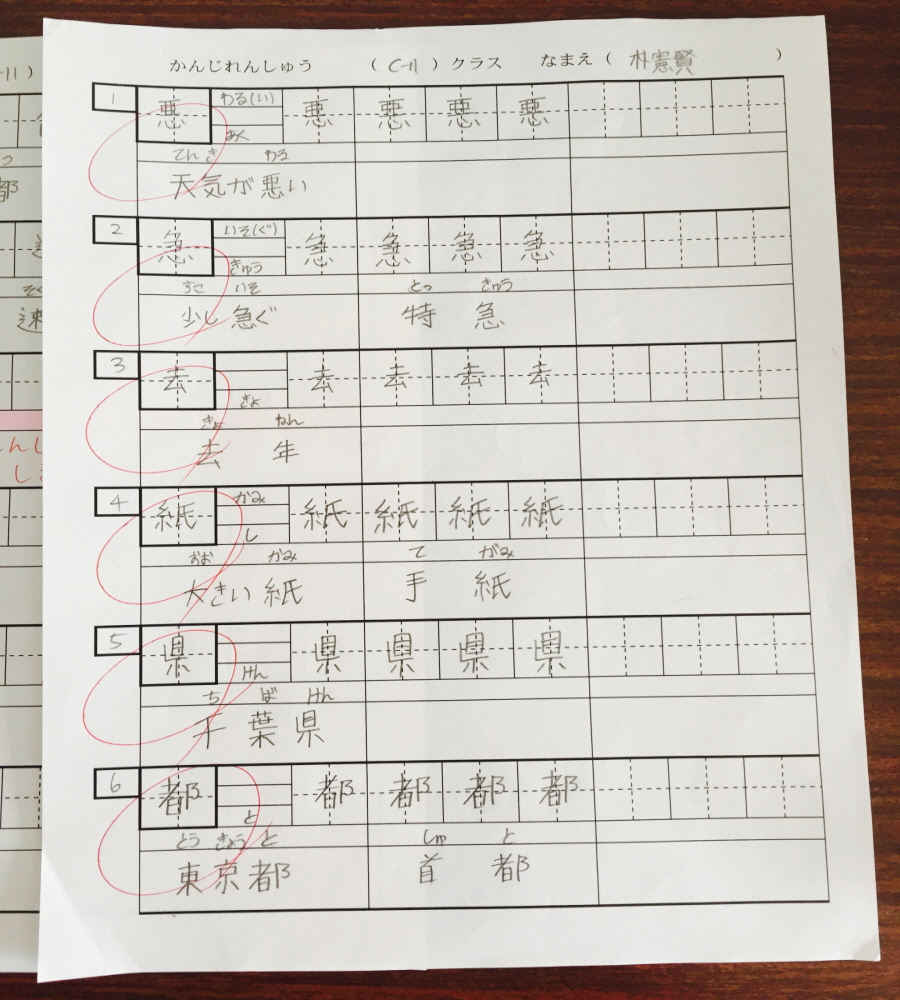 かんじれんしゅう （ C-11 ） クラス なまえ （ 朴憲賢 ）
1 悪 わる(い) あく 悪 悪 悪 悪
てんき わる
天気が悪い
2 急 いそ(ぐ) きゅう 急 急 急 急
すこ いそ とっ きゅう
少し急ぐ 特 急
3 去 きょ 去 去 去 去
きょ ねん
去 年
4 紙 かみ し 紙 紙 紙 紙
おお かみ て がみ
大きい紙 手 紙
5 県 けん 県 県 県 県
ち ば けん
千 葉 県
6 都 と 都 都 都 都
とう きょう と しゅ と
東京都 首 都
-11 ）
都
速